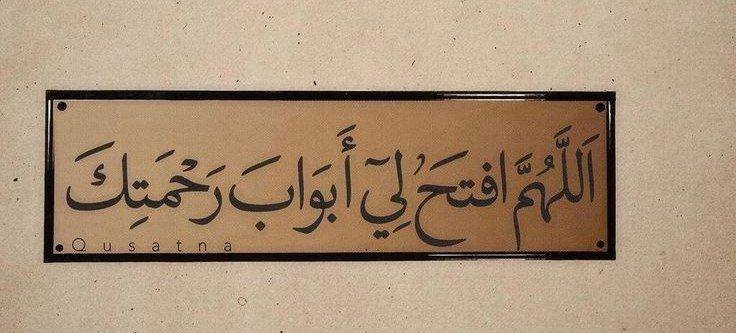 اَللَّهُمَّ افتَحْ لِي أَبوَابَ رَحْمَتِكَ
Qusatna